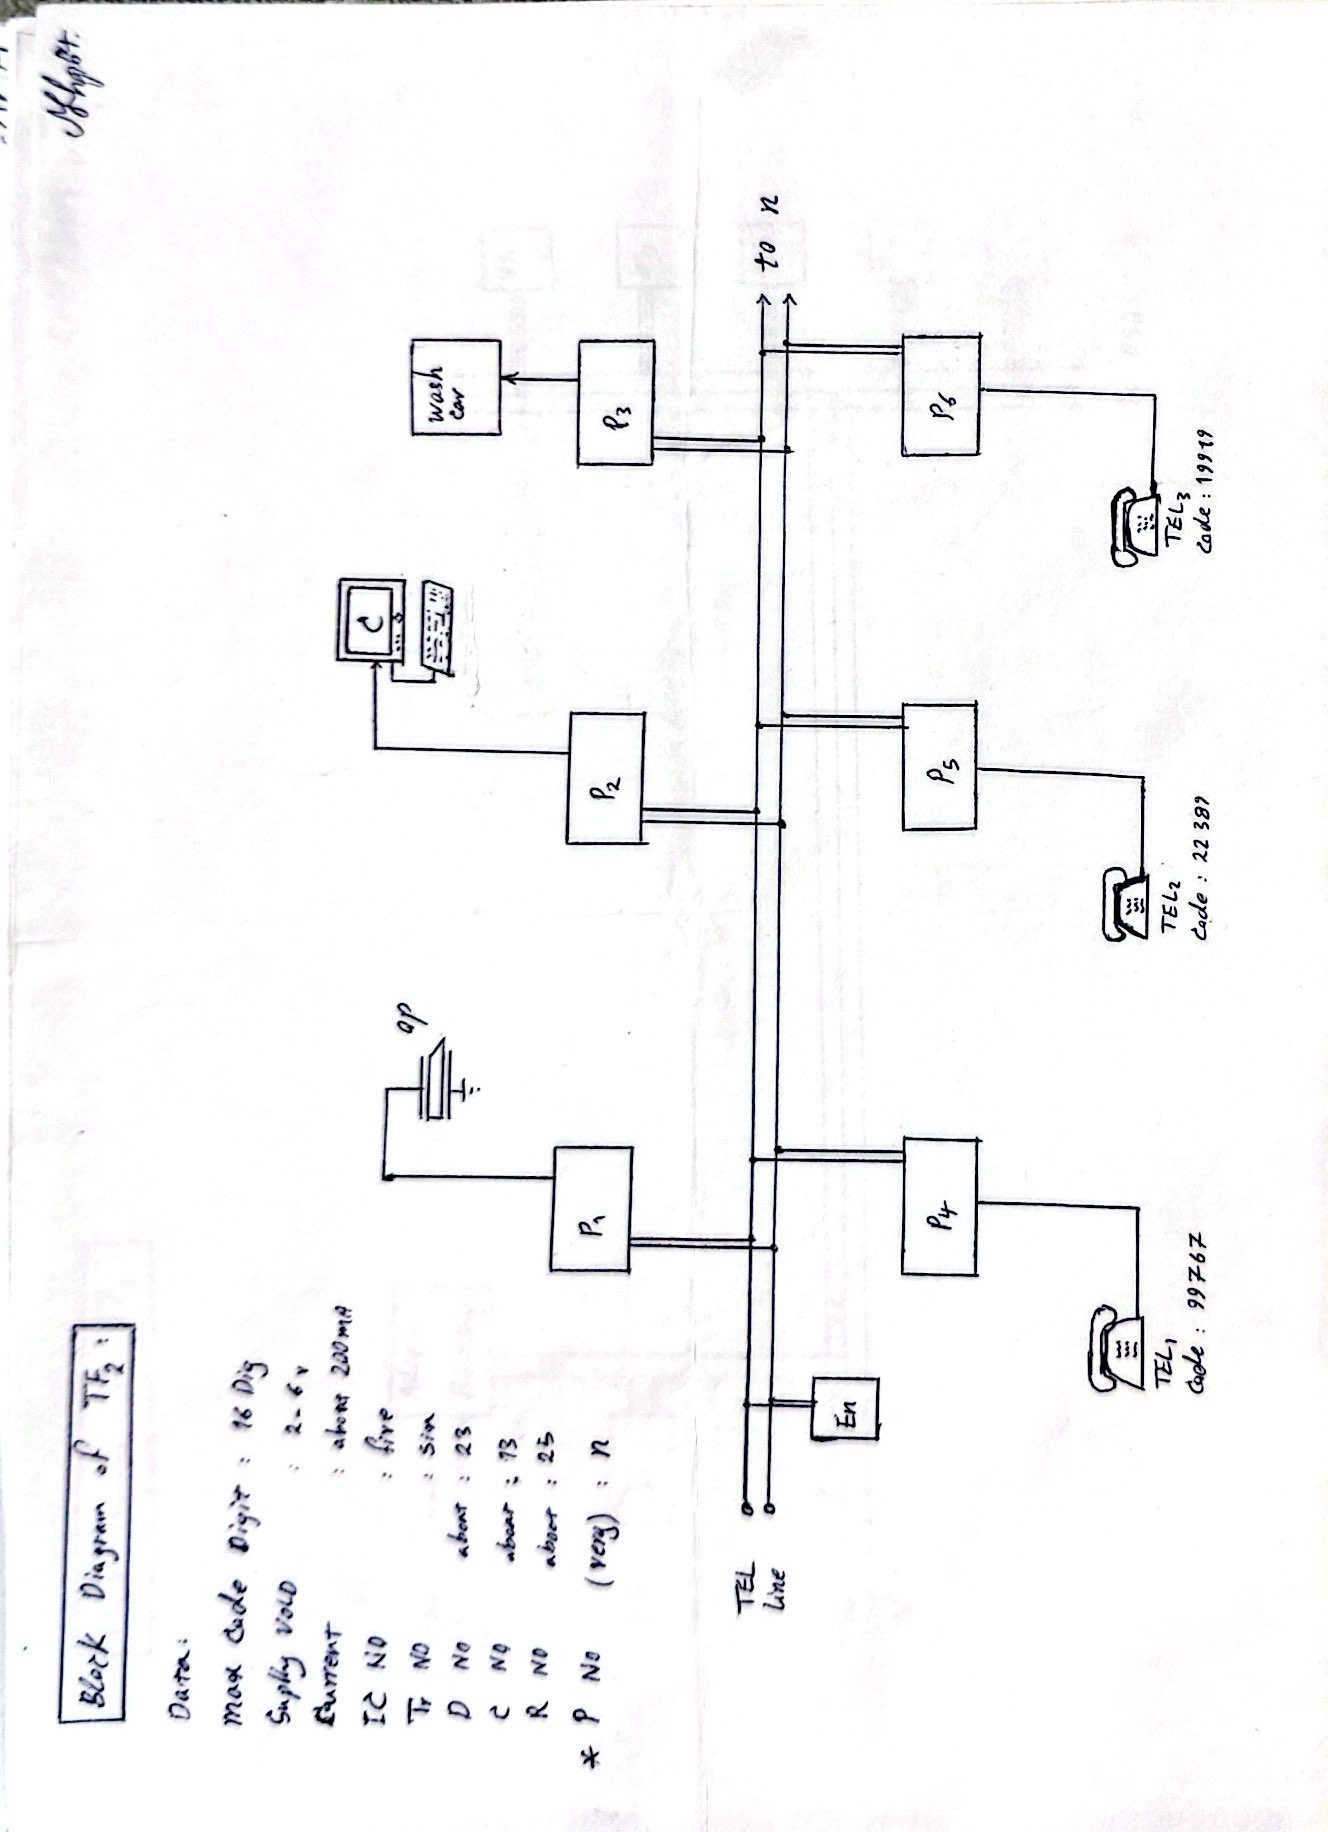 Block Diagram of TF2:
Data:
max Code Digit : 16 Dig
Suplly VOLD : 2-6v
Current : about 200mA
IC NO : five
Tr NO : six
D NO about : 23
C NO about : 13
R NO about : 25
* P NO (very) : n
ap
C
wash
car
P1
P2
P3
TEL
line
to n
En
P4
P5
P6
TEL1
Code : 99767
TEL2
Code : 22389
TEL3
Code : 19919